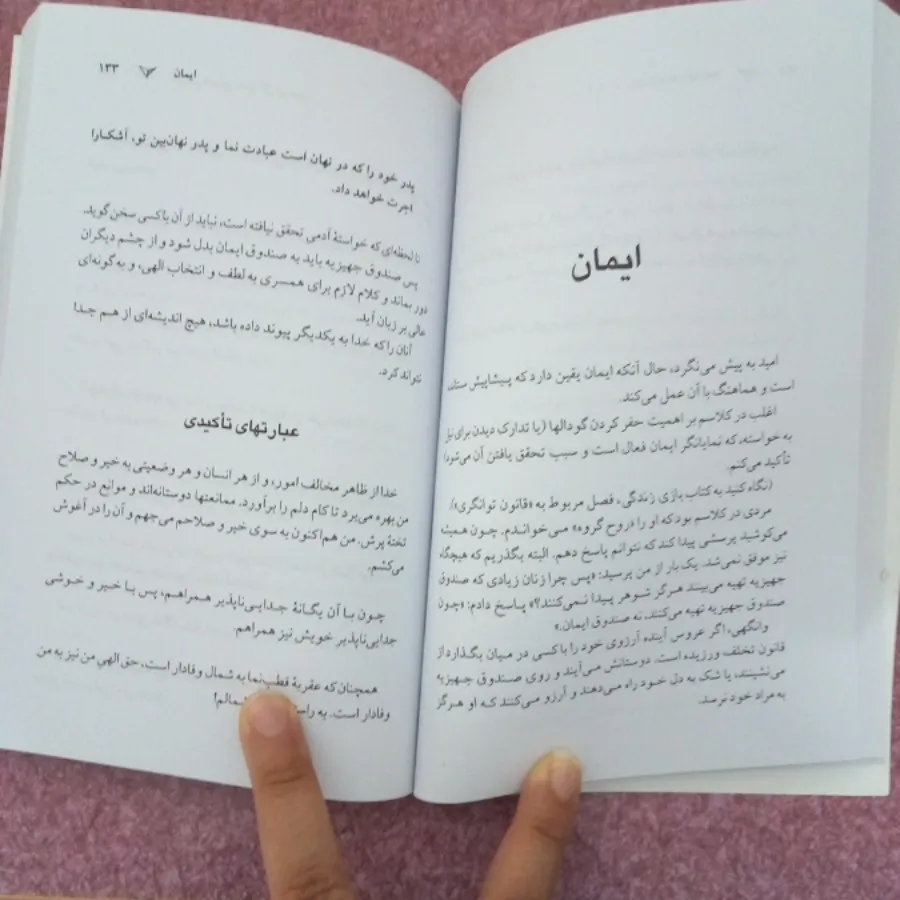 ایمان
امید به پیش می‌نگرد، حال آنکه ایمان یقین دارد که پیشاپیش ستانده
است و هماهنگ با آن عمل می‌کند.
اغلب در کلاسم بر اهمیت حفر کردن گودالها (یا تدارک دیدن برای نیل
به خواسته، که نمایانگر ایمان فعال است و سبب تحقق یافتن آن می‌شود)
تأکید می‌کنم.
(نگاه کنید به کتاب بازی زندگی، فصل مربوط به «قانون توانگری»).
مردی در کلاسم بود که او را «روح گروه» می‌خواندم. چون همیشه
می‌کوشید پرسشی پیدا کند که نتوانم پاسخ دهم. البته بگذریم که هیچگاه
نیز موفق نمی‌شد. یک بار از من پرسید: «پس چرا زنان زیادی که صندوق
جهیزیه تهیه می‌بینند هرگز شوهر پیدا نمی‌کنند؟» پاسخ دادم: «چون
صندوق جهیزیه تهیه می‌کنند، نه صندوق ایمان.»
وانگهی، اگر عروس آینده آرزوی خود را با کسی در میان بگذارد از
قانون تخلف ورزیده است. دوستانش می‌آیند و روی صندوق جهیزیه
می‌نشینند، یا شک به دل خود راه می‌دهند و آرزو می‌کنند که او هرگز
به مراد خود نرسد.
ایمان ۱۳۳
پدر خود را که در نهان است عبادت نما و پدر نهان‌بین تو، آشکارا
اجرت خواهد داد.
تا لحظه‌ای که خواستهٔ آدمی تحقق نیافته است، نباید از آن با کسی سخن گوید.
پس صندوق جهیزیه باید به صندوق ایمان بدل شود و از چشم دیگران
دور بماند و کلام لازم برای همسری به لطف و انتخاب الهی، و به گونه‌ای
عالی بر زبان آید.
آنان را که خدا به یکدیگر پیوند داده باشد، هیچ اندیشه‌ای از هم جدا
نتواند کرد.
عبارتهای تأکیدی
خدا از ظاهر مخالف امور، و از هر انسان و هر وضعیتی به خیر و صلاح
من بهره می‌برد تا کام دلم را برآورد. ممانعتها دوستانه‌اند و موانع در حکم
تختهٔ پرش. من هم‌اکنون به سوی خیر و صلاحم می‌جهم و آن را در آغوش
می‌کشم.
چون با آن یگانهٔ جدایی‌ناپذیر همراهم، پس با خیر و خوشی
جدایی‌ناپذیر خویش نیز همراهم.
همچنان که عقربهٔ قطب‌نما به شمال وفادار است، حق الهی من نیز به من
وفادار است. به راستی شمالم!